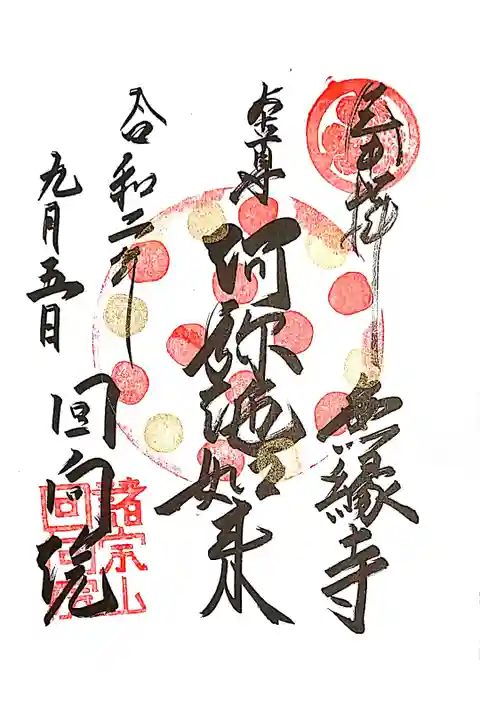 奉拝
無縁寺
本尊
阿弥陀如来
令和二年
九月五日
回向院
諸宗山
回向院